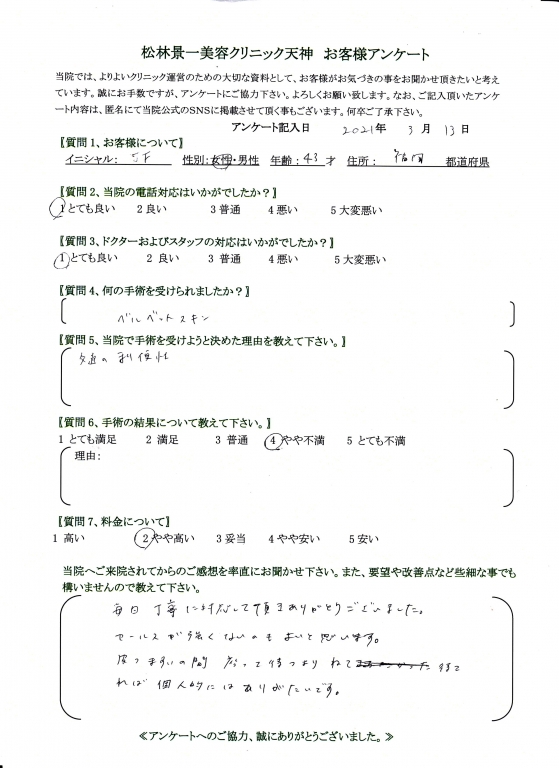 松林景一美容クリニック天神 お客様アンケート
当院では、よりよいクリニック運営のための大切な資料として、お客様がお気づきの事をお聞かせ頂きたいと考え
ています。誠にお手数ですが、アンケートにご協力下さい。よろしくお願い致します。なお、ご記入頂いたアンケ
ート内容は、匿名にて当院公式のSNSに掲載させて頂く事もございます。何卒ご了承下さい。
アンケート記入日 2021年 3月 13日
〖質問1、お客様について〗
イニシャル: 性別:女性・男性 年齢:43才 住所: 福岡 都道府県
〖質問2、当院の電話対応はいかがでしたか?〗
1とても良い 2良い 3普通 4悪い 5大変悪い
〖質問3、ドクターおよびスタッフの対応はいかがでしたか?〗
1とても良い 2 良い 3 普通 4悪い 5大変悪い
〖質問4、何の手術を受けられましたか?〗
ベルベットスキン
〖質問5、当院で手術を受けようと決めた理由を教えて下さい。〗
交通の利便性
〖質問6、手術の結果について教えて下さい。〗
1とても満足 2 満足 3 普通 4やや不満 5 とても不満
理由:
〖質問7、料金について〗
1 高い 2やや高い 3妥当 4やや安い 5安い
当院へご来院されてからのご感想を率直にお聞かせ下さい。また、要望や改善点など些細な事でも
構いませんので教えて下さい。
毎回 丁寧に対応して頂きありがとうございました。
セールスが強くないのもよいと思います。
ますいの間 座って待つより ねて 待て
れば 個人的にはありがたいです。
≪アンケートへのご協力、誠にありがとうございました。≫